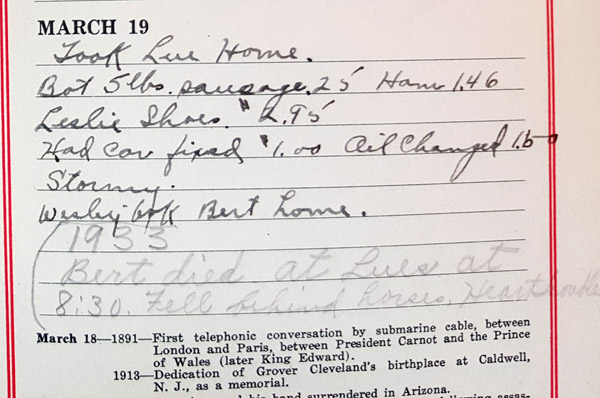 MARCH 19
Took Lue Home.
Bot 5lbs. sausage .25 Ham 1.46
Leslie Shoes. " 2.95
Had car fixed $1.00 Oil Changed 1.50
Stormy.
Wesley took Bert home.
1933
Bert died at Lues at
8:30. Fell behind horses. Heart trouble
March 18—1891—First telephonic conversation by submarine cable, between
London and Paris, between President Carnot and the Prince
of Wales (later King Edward).
1913—Dedication of Grover Cleveland's birthplace at Caldwell,
N. J., as a memorial.
his band surrendered in Arizona.
following assas-